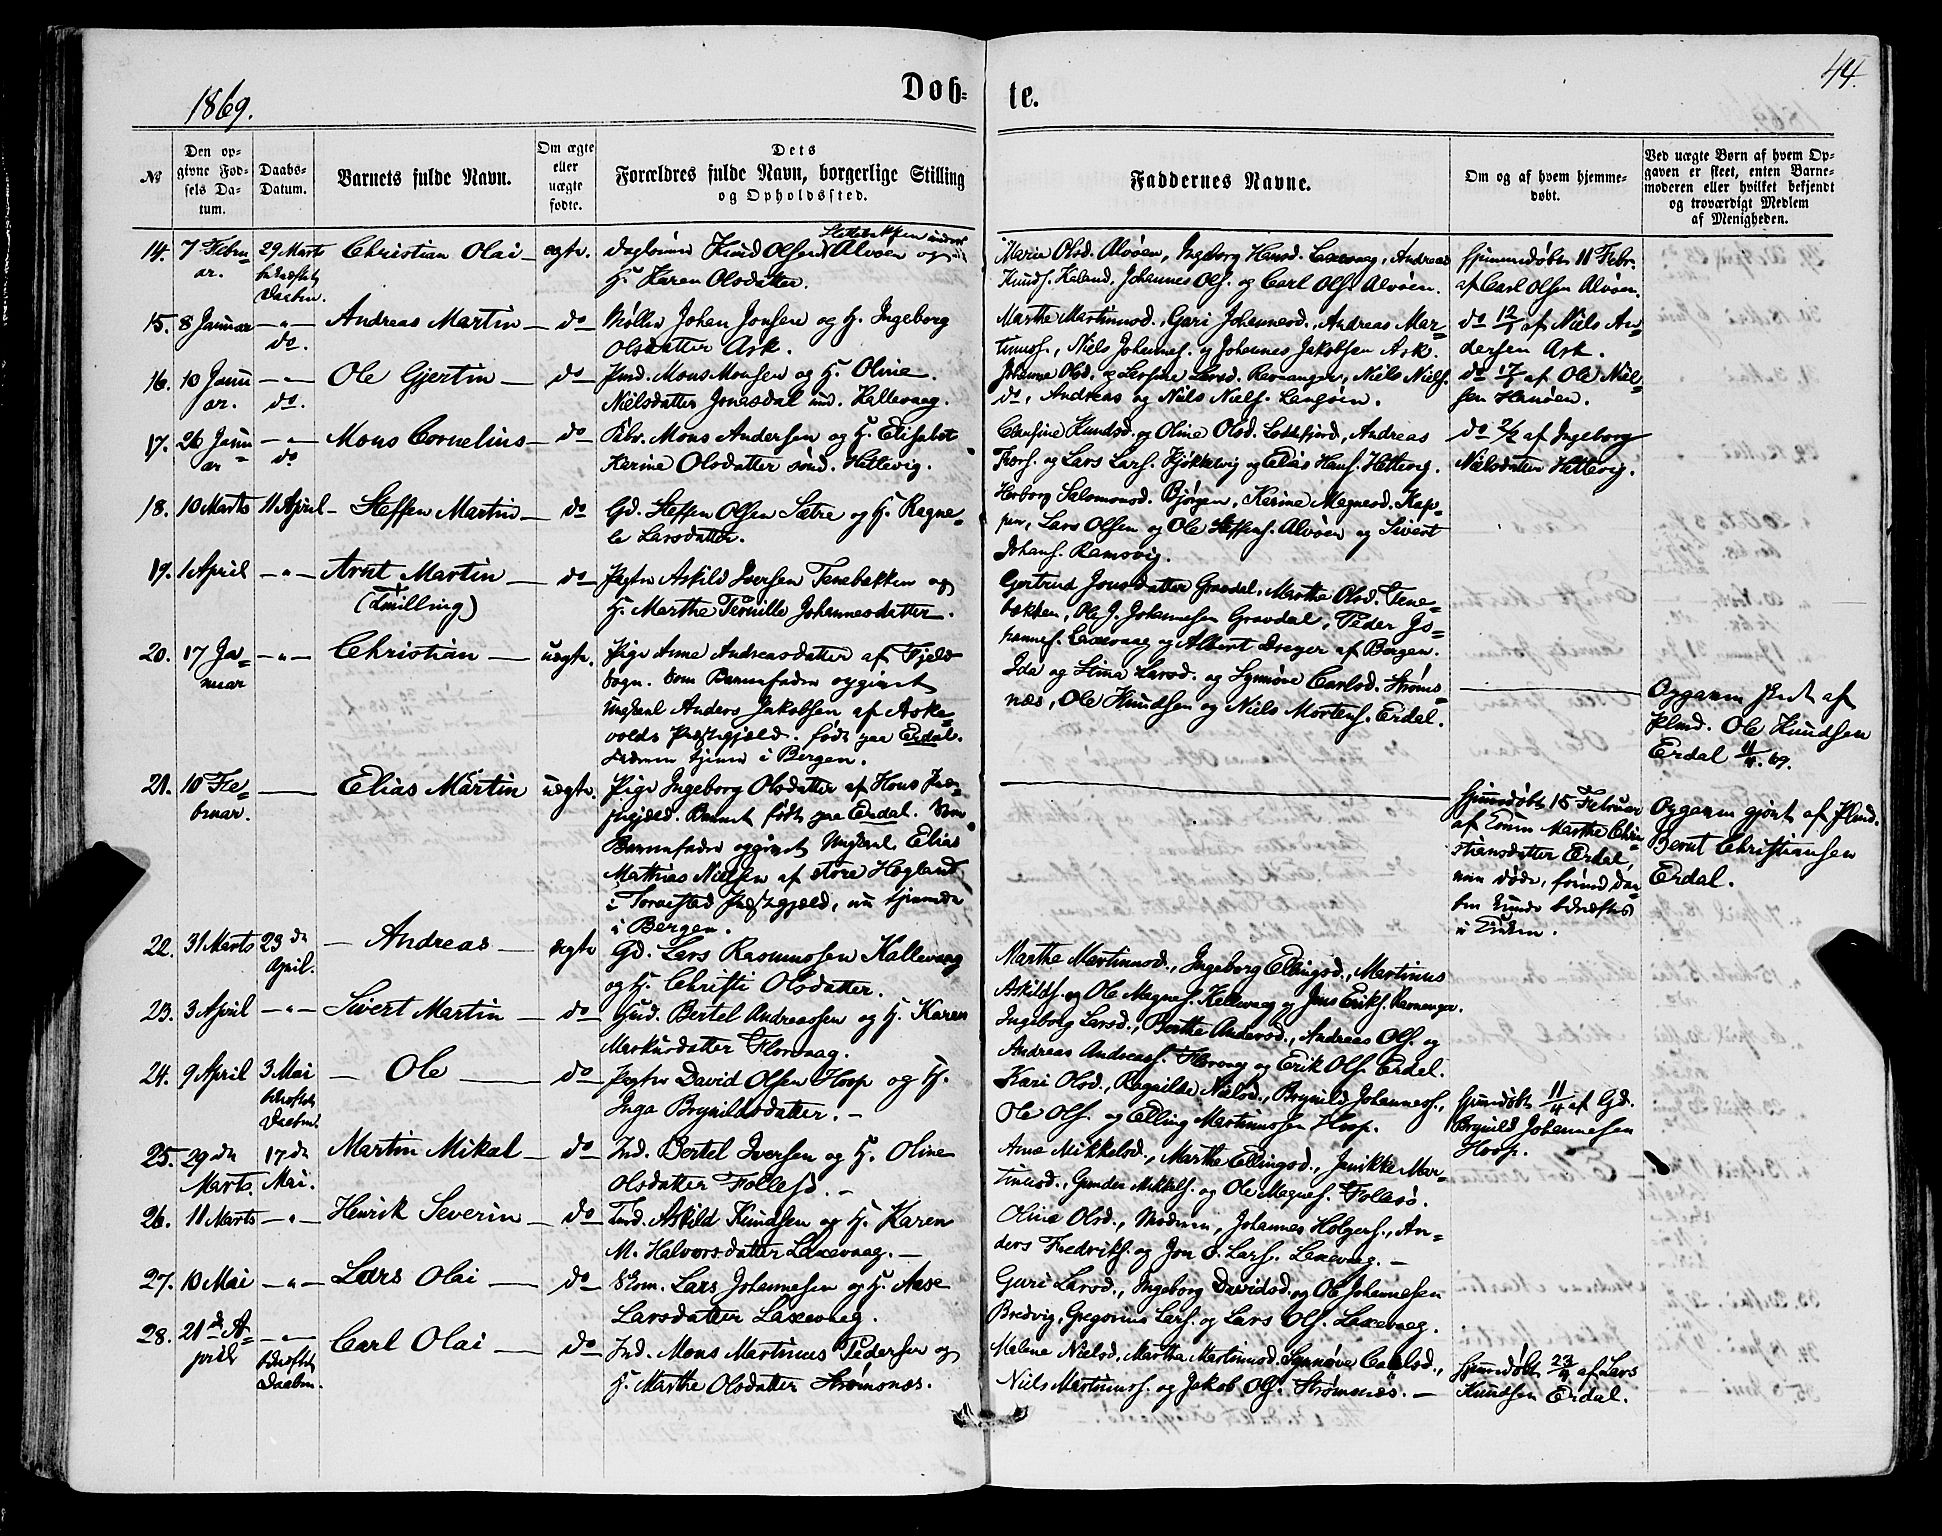 44.
1869.
Døb- te.
№
Den op-
givne Fød-
sels Da-
tum.
Daabs-
Datum.
Barnets fulde Navn.
Om ægte
eller
uægte
født.
Dets
Forældres fulde Navn, borgerlige Stilling
og Opholdssted.
Faddernes Navne.
Om og af hvem hjemme-
døbt.
Ved uægte Børn af hvem Op-
gaven er skeet, enten Barne-
moderen eller hvilket bekjendt
og troværdigt Medlem
af Menigheden.
14. 7 Febru-
ar.
29 Marts
Daaben.
Christian Olai
ægte.
Knud Olsen Alvøen og
H. Karen Olsdatter.
Marie Olsd. Alvøen, Ingeborg Hansd. Laxevaag, Andreas
Knuds. Johannes Ols. og Carl Ols. Alvøen.
Hjemmedøbt 11 Febr.
af Carl Olsen Alvøen.
15. 8 Januar
do.
Andreas Martin
do
Møller Johan Jonsen og H. Ingeborg
Olsdatter Ask.
Marthe Martinusd., Guri Johannesd., Andreas Mar-
tinuss., Niels Johannes. og Johannes Jakobsen Ask.
do 12/1 af Niels An-
dersen Ask.
16. 10 Janu-
ar.
do.
Ole Gjertin
do
Mons Monsen og H. Oline
Nielsdatter Jonasdal Kallevaag.
Larsd. Ravnanger, Niels Niels.
do, Andreas og Niels Niels.
do 17/1 af Ole Niel-
sen Hanøen.
17. 26 Janu-
ar
do
Mons Cornelius
do
Mons Andersen og H. Elisabet
Karine Olsdatter Hettevig.
Knudsd. og Oline Olsd. Andreas
og Lars Lars. og Elias Hans. Hettevig.
do 2/2 af Ingeborg
Nielsdatter Hettevig.
18. 10 Marts 11 April
Steffen Martin
do
Gd. Steffen Olsen Sætre og H. Ragne-
le Larsdatter.
Herborg Salomonsd. Bjørgen, Karine Magnesd. Kap-
pen, Lars Olsen og Ole Steffens. Alvøen og Sivert
Johans. Ramsvig.
19. 1 April
Arnt Martin
(Tvilling)
do
Askild Iversen Tenebakken og
H. Marthe Pernille Johannesdatter.
Gertrud Jonsdatter Gravdal, Marthe Olsd. Tene-
bakken, Ole J. Johannesen Gravdal, Peder Jo-
hannes. Laxevaag og Albert Dreyer af Bergen.
20. 17 Ja-
nuar
Christian
uægte.
Pige Anne Andreasdatter af Fjeld
Sogn. Som Barnefader opgivet
Ungkarl Anders Jakobsen af Aske-
volds Præstegjæld. født paa Erdal.
i Bergen.
Ida og Stina Larsd. og Synnøve Carlsd. Strøms-
næs, Ole Knudsen og Niels Mortens. Erdal.
Opgaven skeet af
Ole Knudsen
Erdal 11/4 69.
21. 10 Fe-
bruar.
Elias Martin
uægte.
Pige Ingeborg Olsdatter af Hous Præ-
stegjæld. Barnet født paa Erdal. Som
Barnefader opgivet Ungkarl Elias
Mathias Nielsen af store Høgland
i Torvestad Præstegjæld, nu tjenende
i Bergen.
Hjemmedøbt 15 Februar
af Marthe Chri-
stiansdatter Erdal,
men døde, forend Daa-
ben kunde bekræftes
i Kirken.
Opgaven gjort af
Bernt Christiansen
Erdal.
22. 31 Marts 23 de
April.
Andreas
ægte
Gd. Lars Rasmussen Kallevaag
og H. Christi Olsdatter.
Marthe Martinusd., Ingeborg Ellingsd., Martinus
Askilds. og Ole Magnes. Kallevaag og Jens Eriks. Ravnanger.
23. 3 April
Sivert Martin
do
Bertel Andreassen og H. Karen
Markusdatter Florvaag.
Ingeborg Larsd., Berthe Andersd., Andreas Ols. og
Andreas Andreas. Florvag og Erik Ols. Erdal.
24. 9 April 3 Mai
Daaben.
Ole
do
David Olsen Hoop og H.
Inga Brynildsdatter.
Kari Olsd., Ragnilde Nielsd., Brynild Johannes.,
Ole Ols. og Elling Martinussen Hoop.
Hjemmedøbt 11/4 af Gd.
Brynild Johannesen
Hoop.
25. 29 de
Marts.
17 de
Mai.
Martin Mikal
do
Ind. Bertel Iversen og H. Oline
Olsdatter Follesø.
Anne Mikkelsd., Marthe Ellingsd., Janikke Mar-
tinusd., Gunder Mikkels. og Ole Magnes. Follesø.
26. 11 Marts
Henrik Severin
do
Ind. Askild Knudsen og H. Karen
M. Halvorsdatter Laxevaag.
Olina Olsd., Moderen, Johannes Holgers., An-
ders Fredriks. og Jon S. Lars. Laxevaag.
27. 10 Mai
Lars Olai
do
Lars Johannesen og H. Aase
Larsdatter Laxevaag.
Guri Larsd., Ingeborg Davidsd. og Ole Johannesen
Bredvig, Gregorius Lars. og Lars Ols. Laxevaag.
28. 21 de A-
pril
Daaben.
Carl Olai
do
Ind. Mons Martinus Pedersen og
H. Marthe Olsdatter Strømsnæs.
Malene Nielsd., Marthe Martinusd. Synnøve Carlsd.,
Niels Martinuss. og Jakob Ols. Strømsnæs.
Hjemmedøbt 23/4 af Lars
Knudsen Erdal.